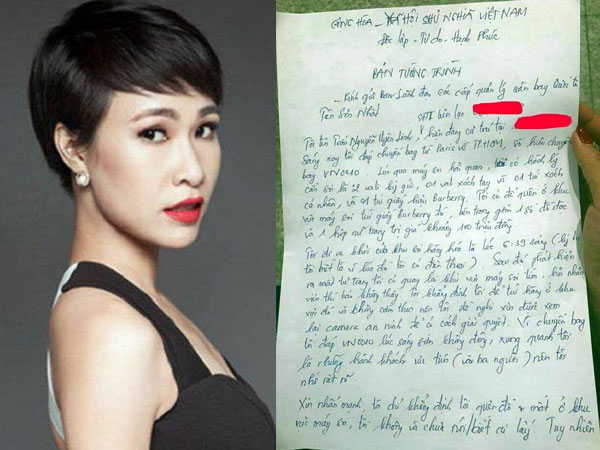 CỘNG HÒA - XÃ HỘI CHỦ NGHĨA VIỆT NAM
Độc lập - Tự do - Hạnh Phúc
BẢN TƯỜNG TRÌNH
Kính gửi Ban Lãnh đạo các cấp quản lý sân bay Quốc tế
Tân Sơn Nhất
SĐT liên lạc
Tôi tên Trần Nguyễn Uyên Linh, hiện đang cư trú tại
Sáng nay tôi đáp chuyến bay từ Paris về TP HCM, số hiệu chuyến
bay VN0010. Lúc qua máy soi hải quan, tôi có hành lý
cần soi là 2 vali ký gửi, 01 vali xách tay và 01 túi xách
cá nhân, và 01 túi giấy hiệu Burberry. Tôi có để quên ở khu
vực máy soi túi giấy Burberry đó, bên trong gồm 1 số đồ đạc
và 1 hộp nữ trang trị giá khoảng 100 triệu đồng.
Tôi đi ra khỏi cửa khu soi hàng hóa là lúc 6:39 sáng (lý do
tôi biết là vì lúc đó tôi có điện thoại). Sau đó phát hiện
ra mất tư trang tôi có quay lại khu vực máy soi tìm, hỏi nhân
viên thì họ không thấy. Tôi khẳng định tôi để túi hàng ở khu
vực đó và không cầm theo nên tôi đề nghị xin được xem
lại camera an ninh để có cách giải quyết. Vì chuyến bay
tôi đáp VN0010 lúc sáng sớm không đông, xung quanh tôi
là những hành khách ưu tiên (vài ba người) nên tôi
nhớ rất rõ.
Xin nhấn mạnh, tôi chỉ khẳng định tôi quên đồ & mất ở khu
vực máy soi, tôi không và chưa nói/biết ai lấy. Tuy nhiên